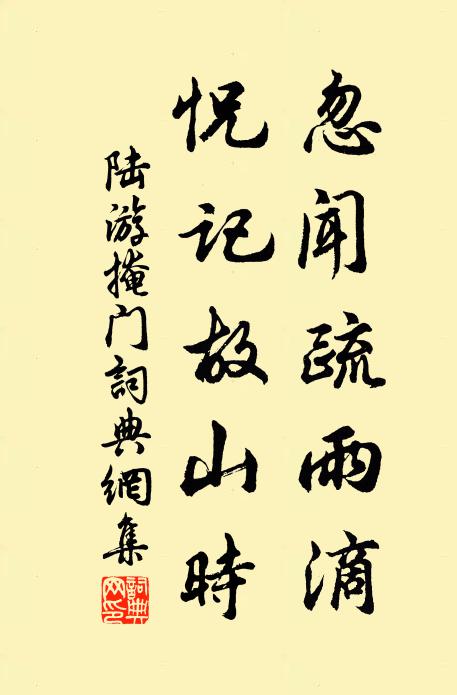 忽闻疏雨滴
怳记故山时
陆游掩门詞典網集
詞典网印